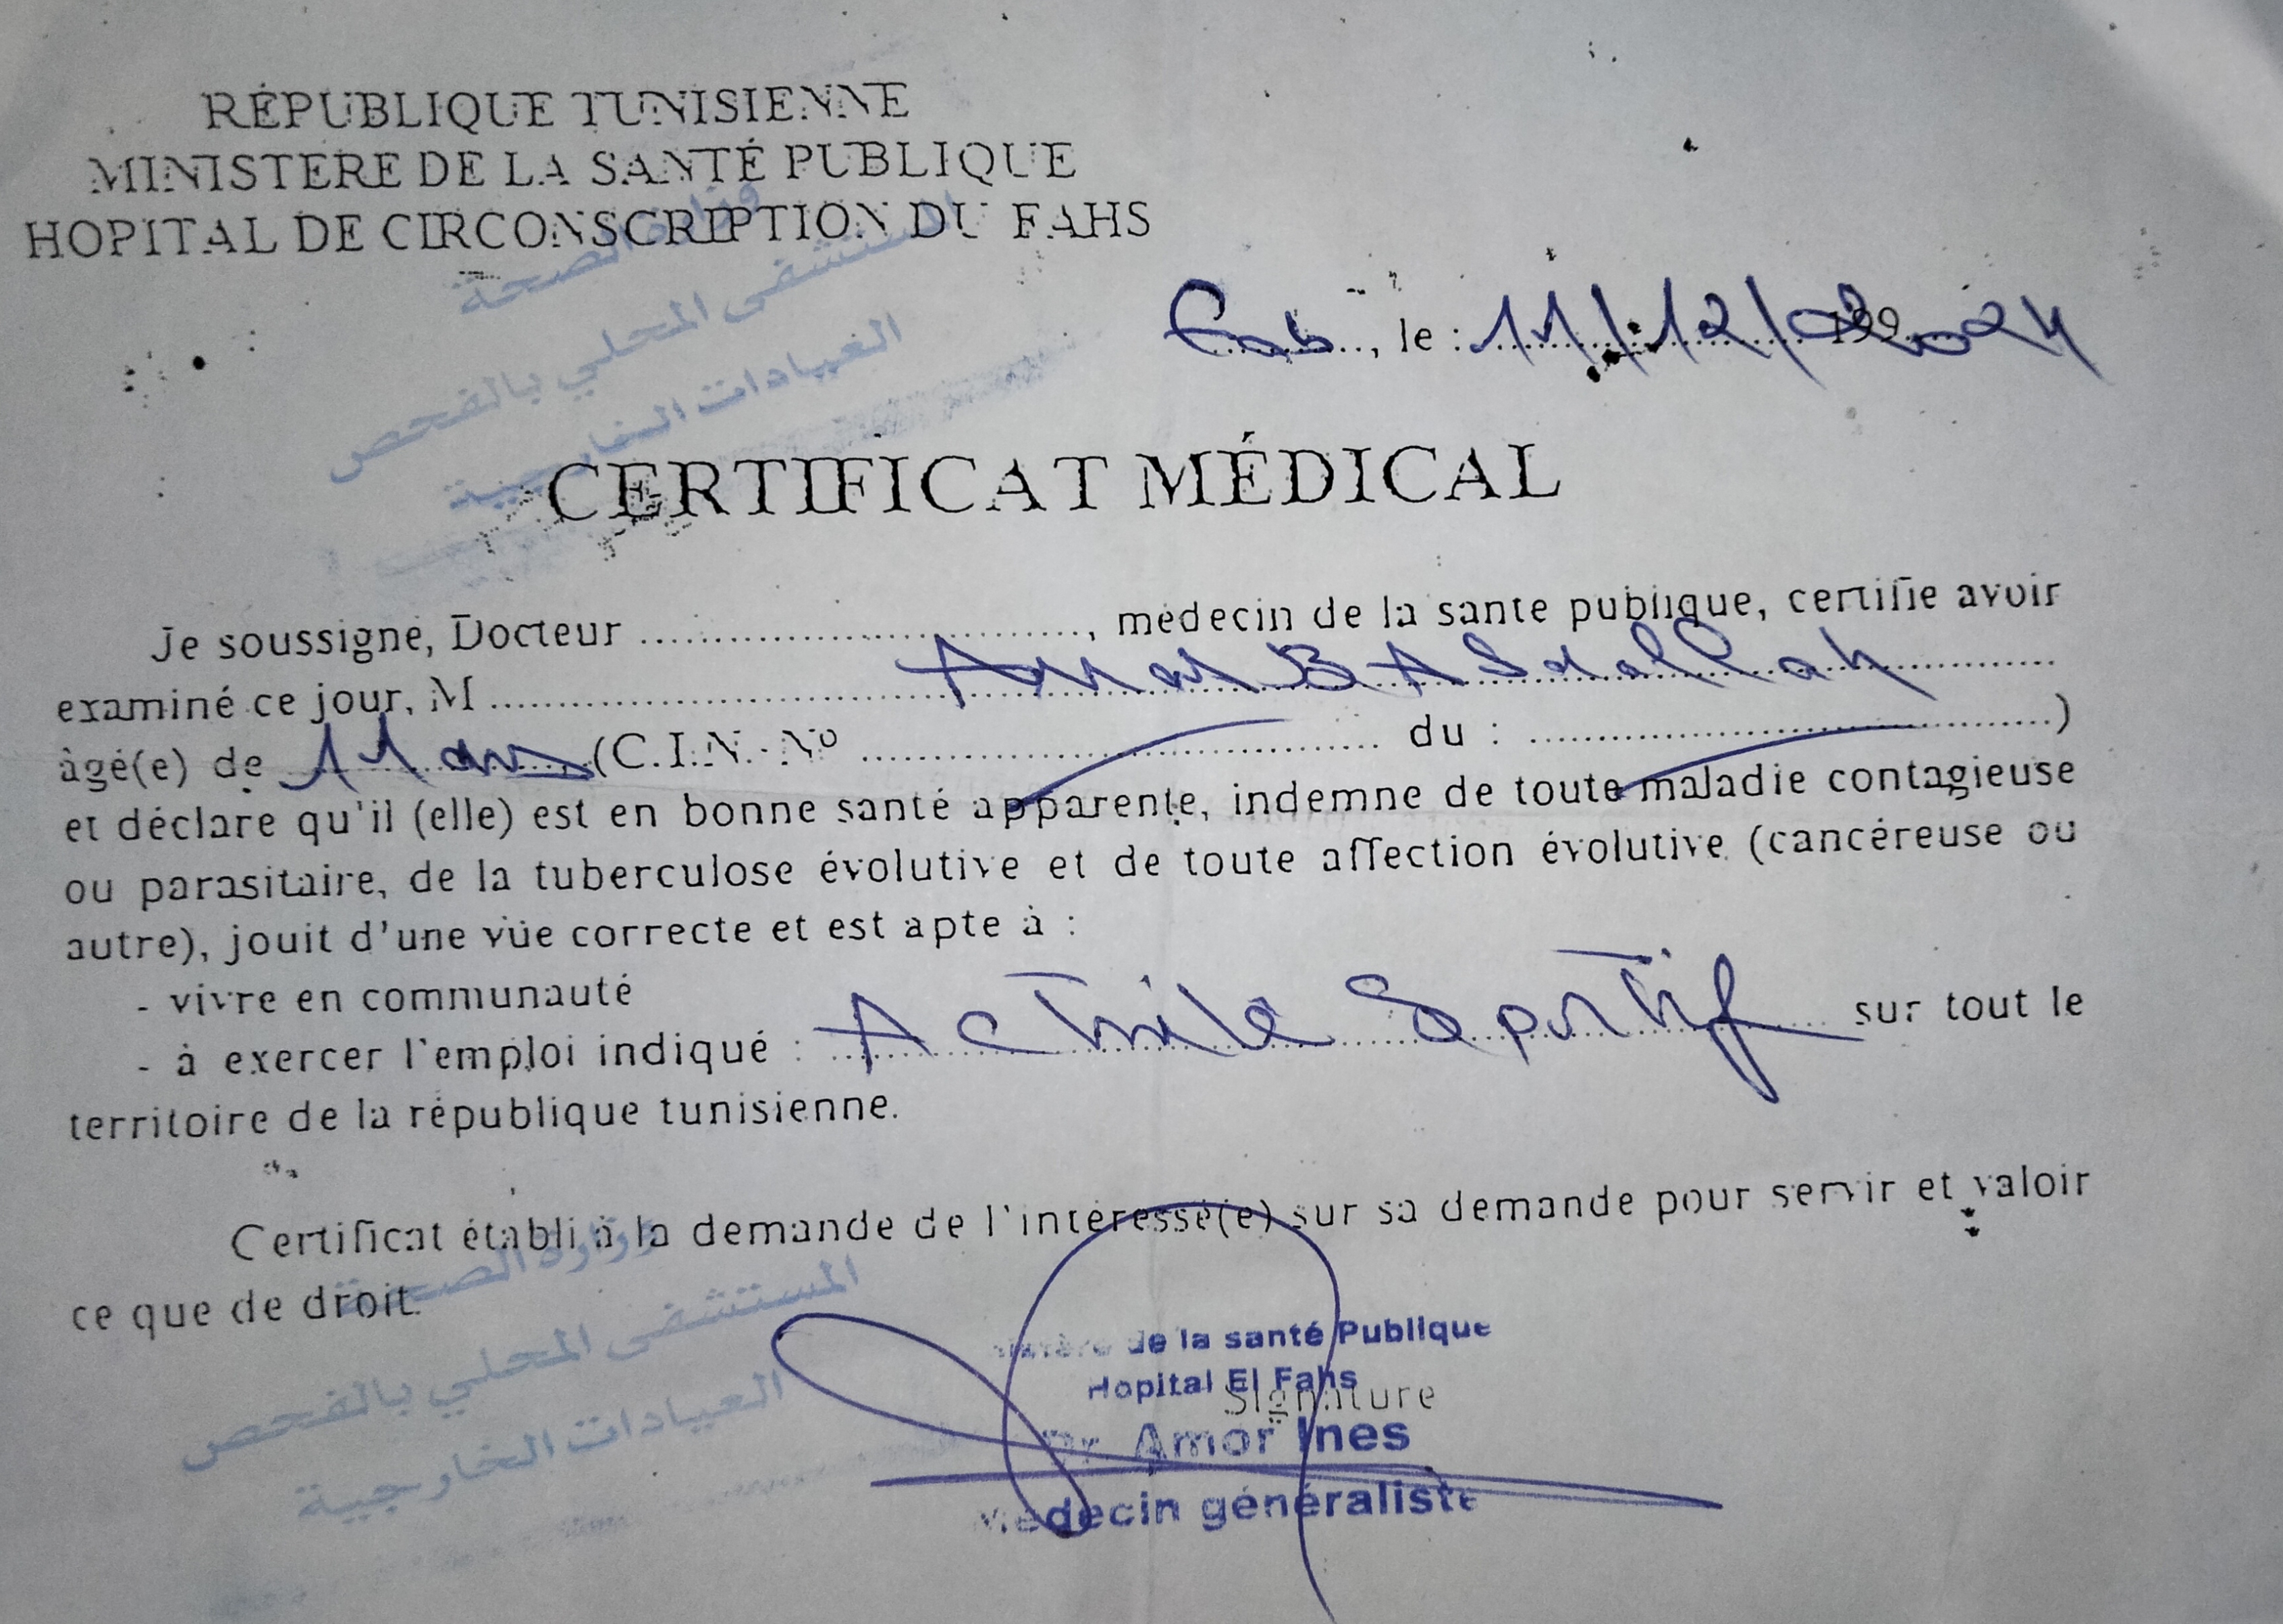 RÉPUBLIQUE TUNISIENNE
MINISTERE DE LA SANTÉ PUBLIQUE
HOPITAL DE CIRCONSCRIPTION DU FAHS
وزارة الصحة
المستشفى المحلي بالفحص
العيادات الخارجية
, le : 11/12/2024
CERTIFICAT MÉDICAL
Je soussigné, Docteur ........................, médecin de la santé publique, certifie avoir
examiné ce jour, M ........................ B Abdallah
âgé(e) de 11 ans (C.I.N. Nº ........................ du : ........................)
et déclare qu'il (elle) est en bonne santé apparente, indemne de toute maladie contagieuse
ou parasitaire, de la tuberculose évolutive et de toute affection évolutive (cancéreuse ou
autre), jouit d'une vüe correcte et est apte à :
- vivre en communauté
- à exercer l'emploi indiqué : Activité Sportif sur tout le
territoire de la république tunisienne.
Certificat établi à la demande de l'intéressé(e) sur sa demande pour servir et valoir
ce que de droit.
وزارة الصحة
المستشفى المحلي بالفحص
العيادات الخارجية
de la santé Publique
Hopital El Fahs
Signature
Dr Amor Ines
Médecin généraliste